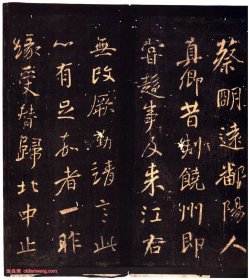 蔡明遠鄱陽人
真卿昔刾饒州即
嘗趍事及来江右
無改厥勤靖言此
心有足嘉者一昨
緣受替歸北中止